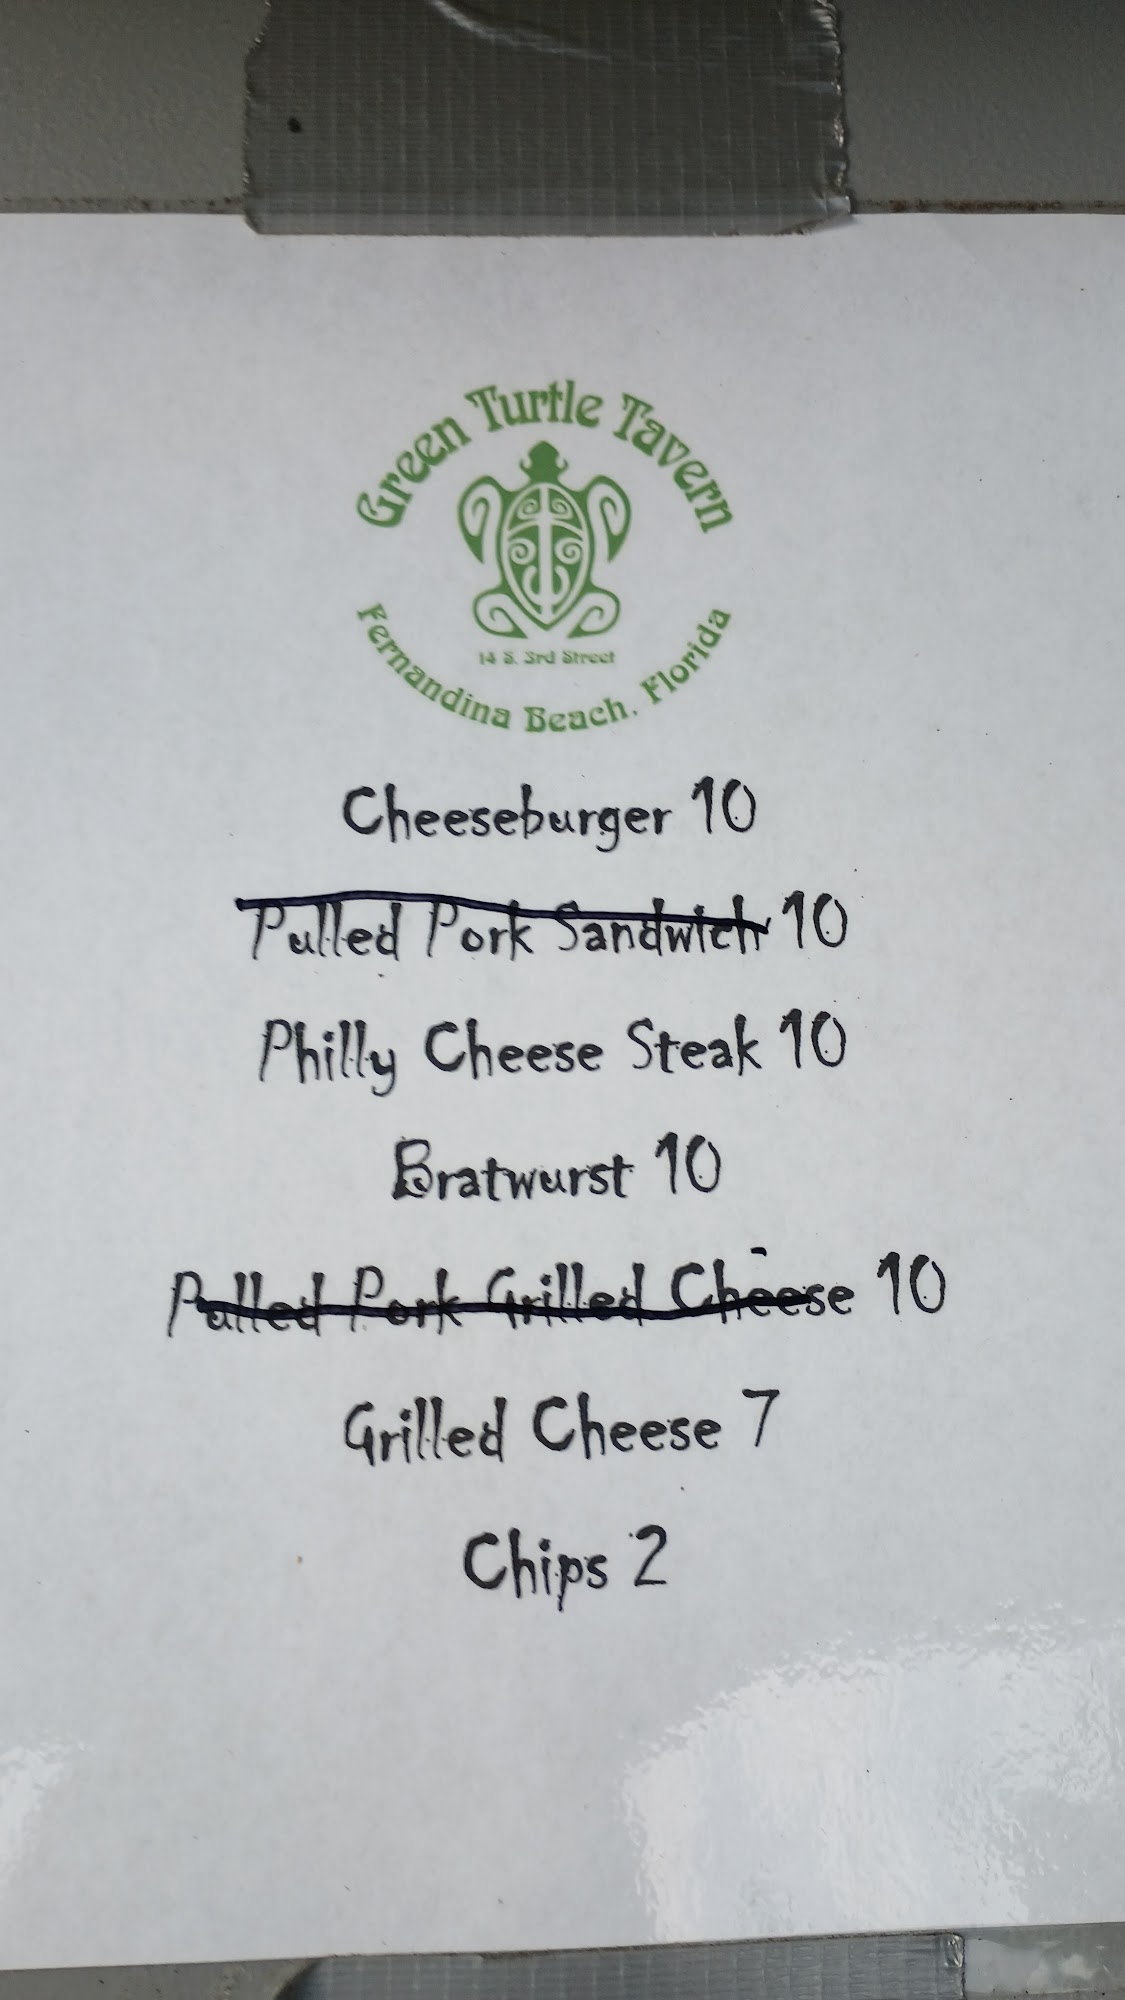 Green Turtle Tavern
14 S. 3rd Street
Fernandina Beach, Florida
Cheeseburger 10
Pulled Pork Sandwich 10
Philly Cheese Steak 10
Bratwurst 10
Pulled Pork Grilled Cheese 10
Grilled Cheese 7
Chips 2